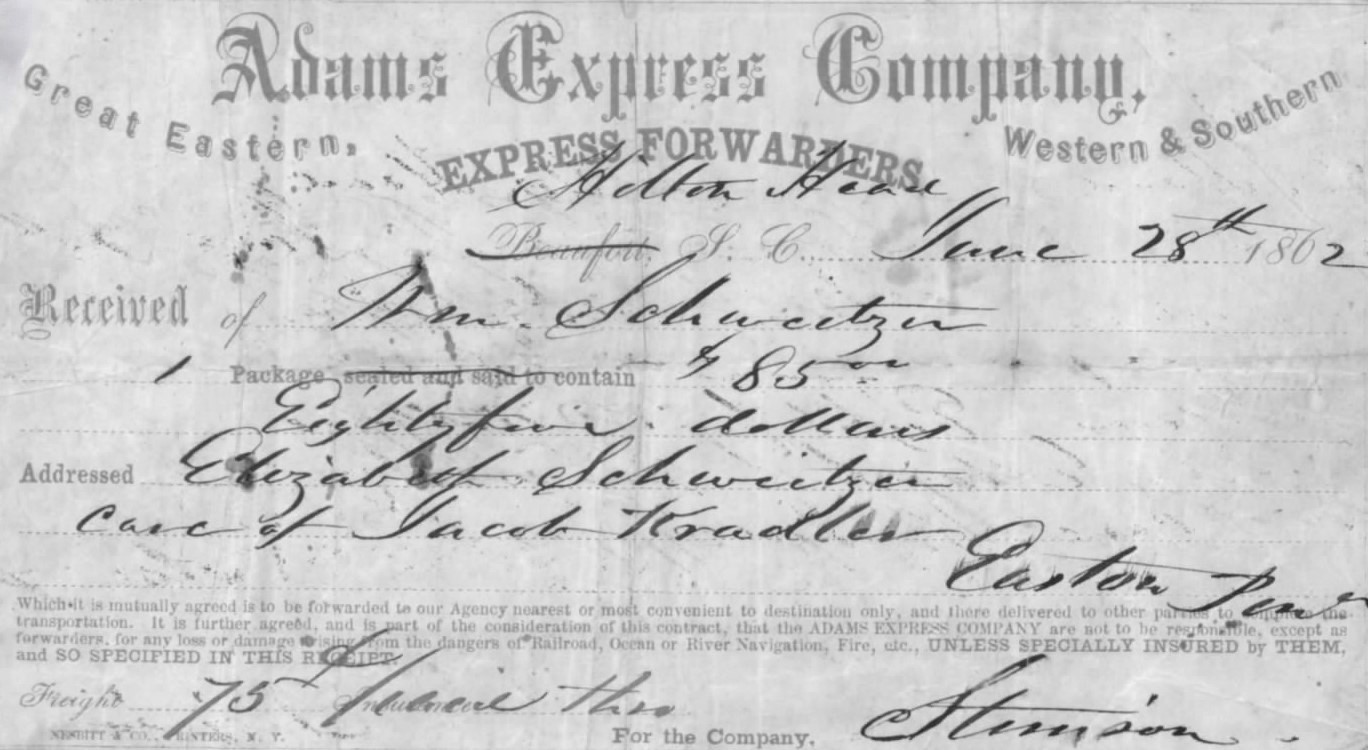 Adams Express Company,
Great Eastern, Western & Southern
EXPRESS FORWARDERS.
Hilton Head
Beaufort, S. C. June 28th 1862
Received of Wm. Schweitzer
1 Package sealed and said to contain $ 85 00
Eighty five dollars
Addressed Elizabeth Schweitzer
care of Jacob Kradler
Easton Penn
Which it is mutually agreed is to be forwarded to our Agency nearest or most convenient to destination only, and there delivered to other parties to complete the
transportation. It is further agreed, and is part of the consideration of this contract, that the ADAMS EXPRESS COMPANY are not to be responsible, except as
forwarders, for any loss or damage arising from the dangers of Railroad, Ocean or River Navigation, Fire, etc., UNLESS SPECIALLY INSURED by THEM,
and SO SPECIFIED IN THIS RECEIPT.
Freight 75
NESBITT & CO., PRINTERS, N. Y. For the Company, Stimson